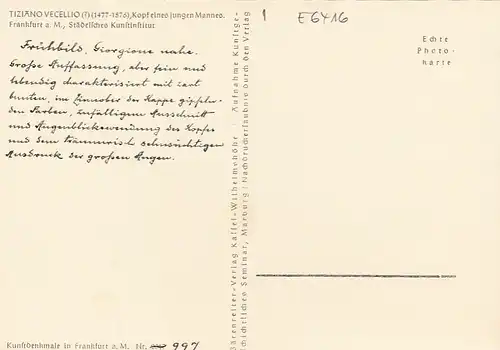 TIZIANO VECELLIO (?) (1477-1576), Kopf eines jungen Mannes.
Frankfurt a. M., Städelisches Kunstinstitut
Frühbild, Giorgione nahe.
Große Auffassung, aber fein und
lebendig charakterisiert mit zart
bunten, im Zinnober der Kappe gipfeln-
den Farben, zufälligem Ausschnitt
und Augenblickswendung des Kopfes
und dem träumerisch sehnsüchtigen
Ausdruck der großen Augen.
Kunstdenkmale in Frankfurt a. M. Nr. 997
Bärenreiter-Verlag Kassel-Wilhelmshöhe / Aufnahme Kunstge-
schichtliches Seminar, Marburg / Nachdruckerlaubnis durch den Verlag
E6416
Echte
Photo-
karte